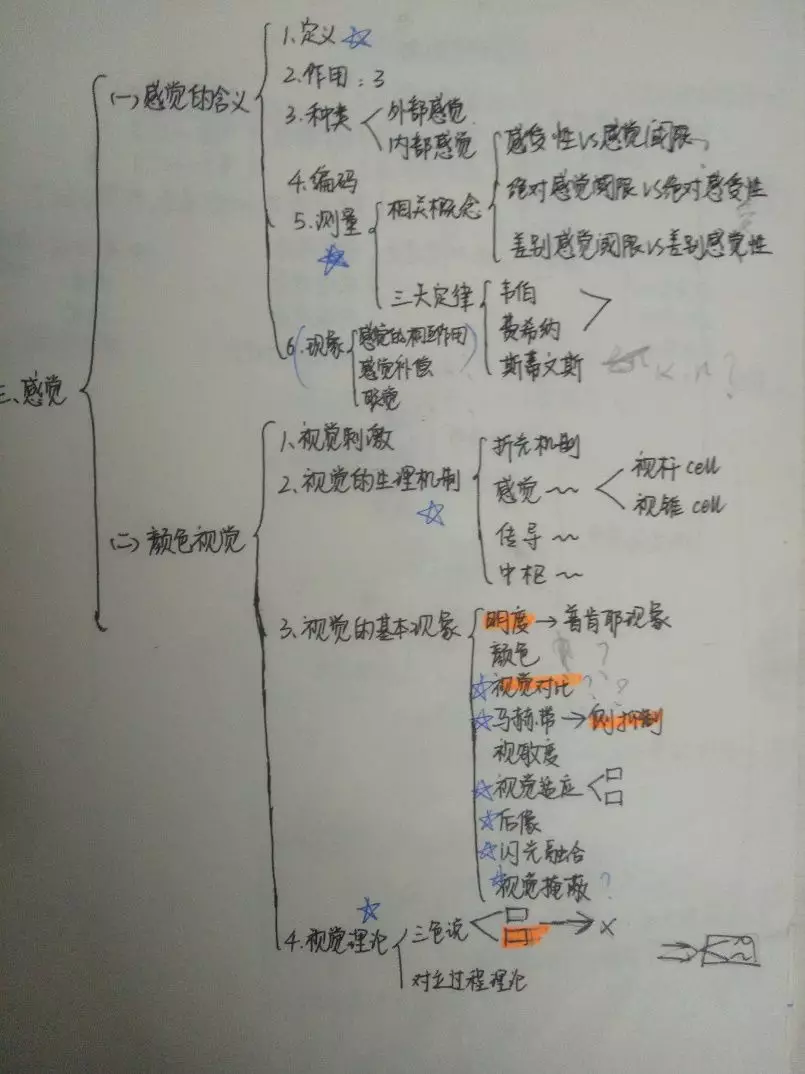 三、感觉
(一)感觉的含义
1.定义
2.作用:3
3.种类
外部感觉
内部感觉
4.编码
5.测量
相关概念
感受性vs感觉阈限
绝对感觉阈限vs绝对感受性
差别感觉阈限vs差别感觉性
三大定律
韦伯
费希纳
斯蒂文斯 K.n?
6.现象
感觉的相互作用
感觉补偿
联觉
(二)颜色视觉
1.视觉刺激
2.视觉的生理机制
折光机制
感觉~
视杆cell
视锥cell
传导~
中枢~
3.视觉的基本现象
明度→普肯耶现象
颜色 ?
视觉对比 ? ?
马赫带→侧抑制
视敏度
视觉适应
后像
闪光融合
视觉掩蔽?
4.视觉理论
三色说 → X
对立过程理论